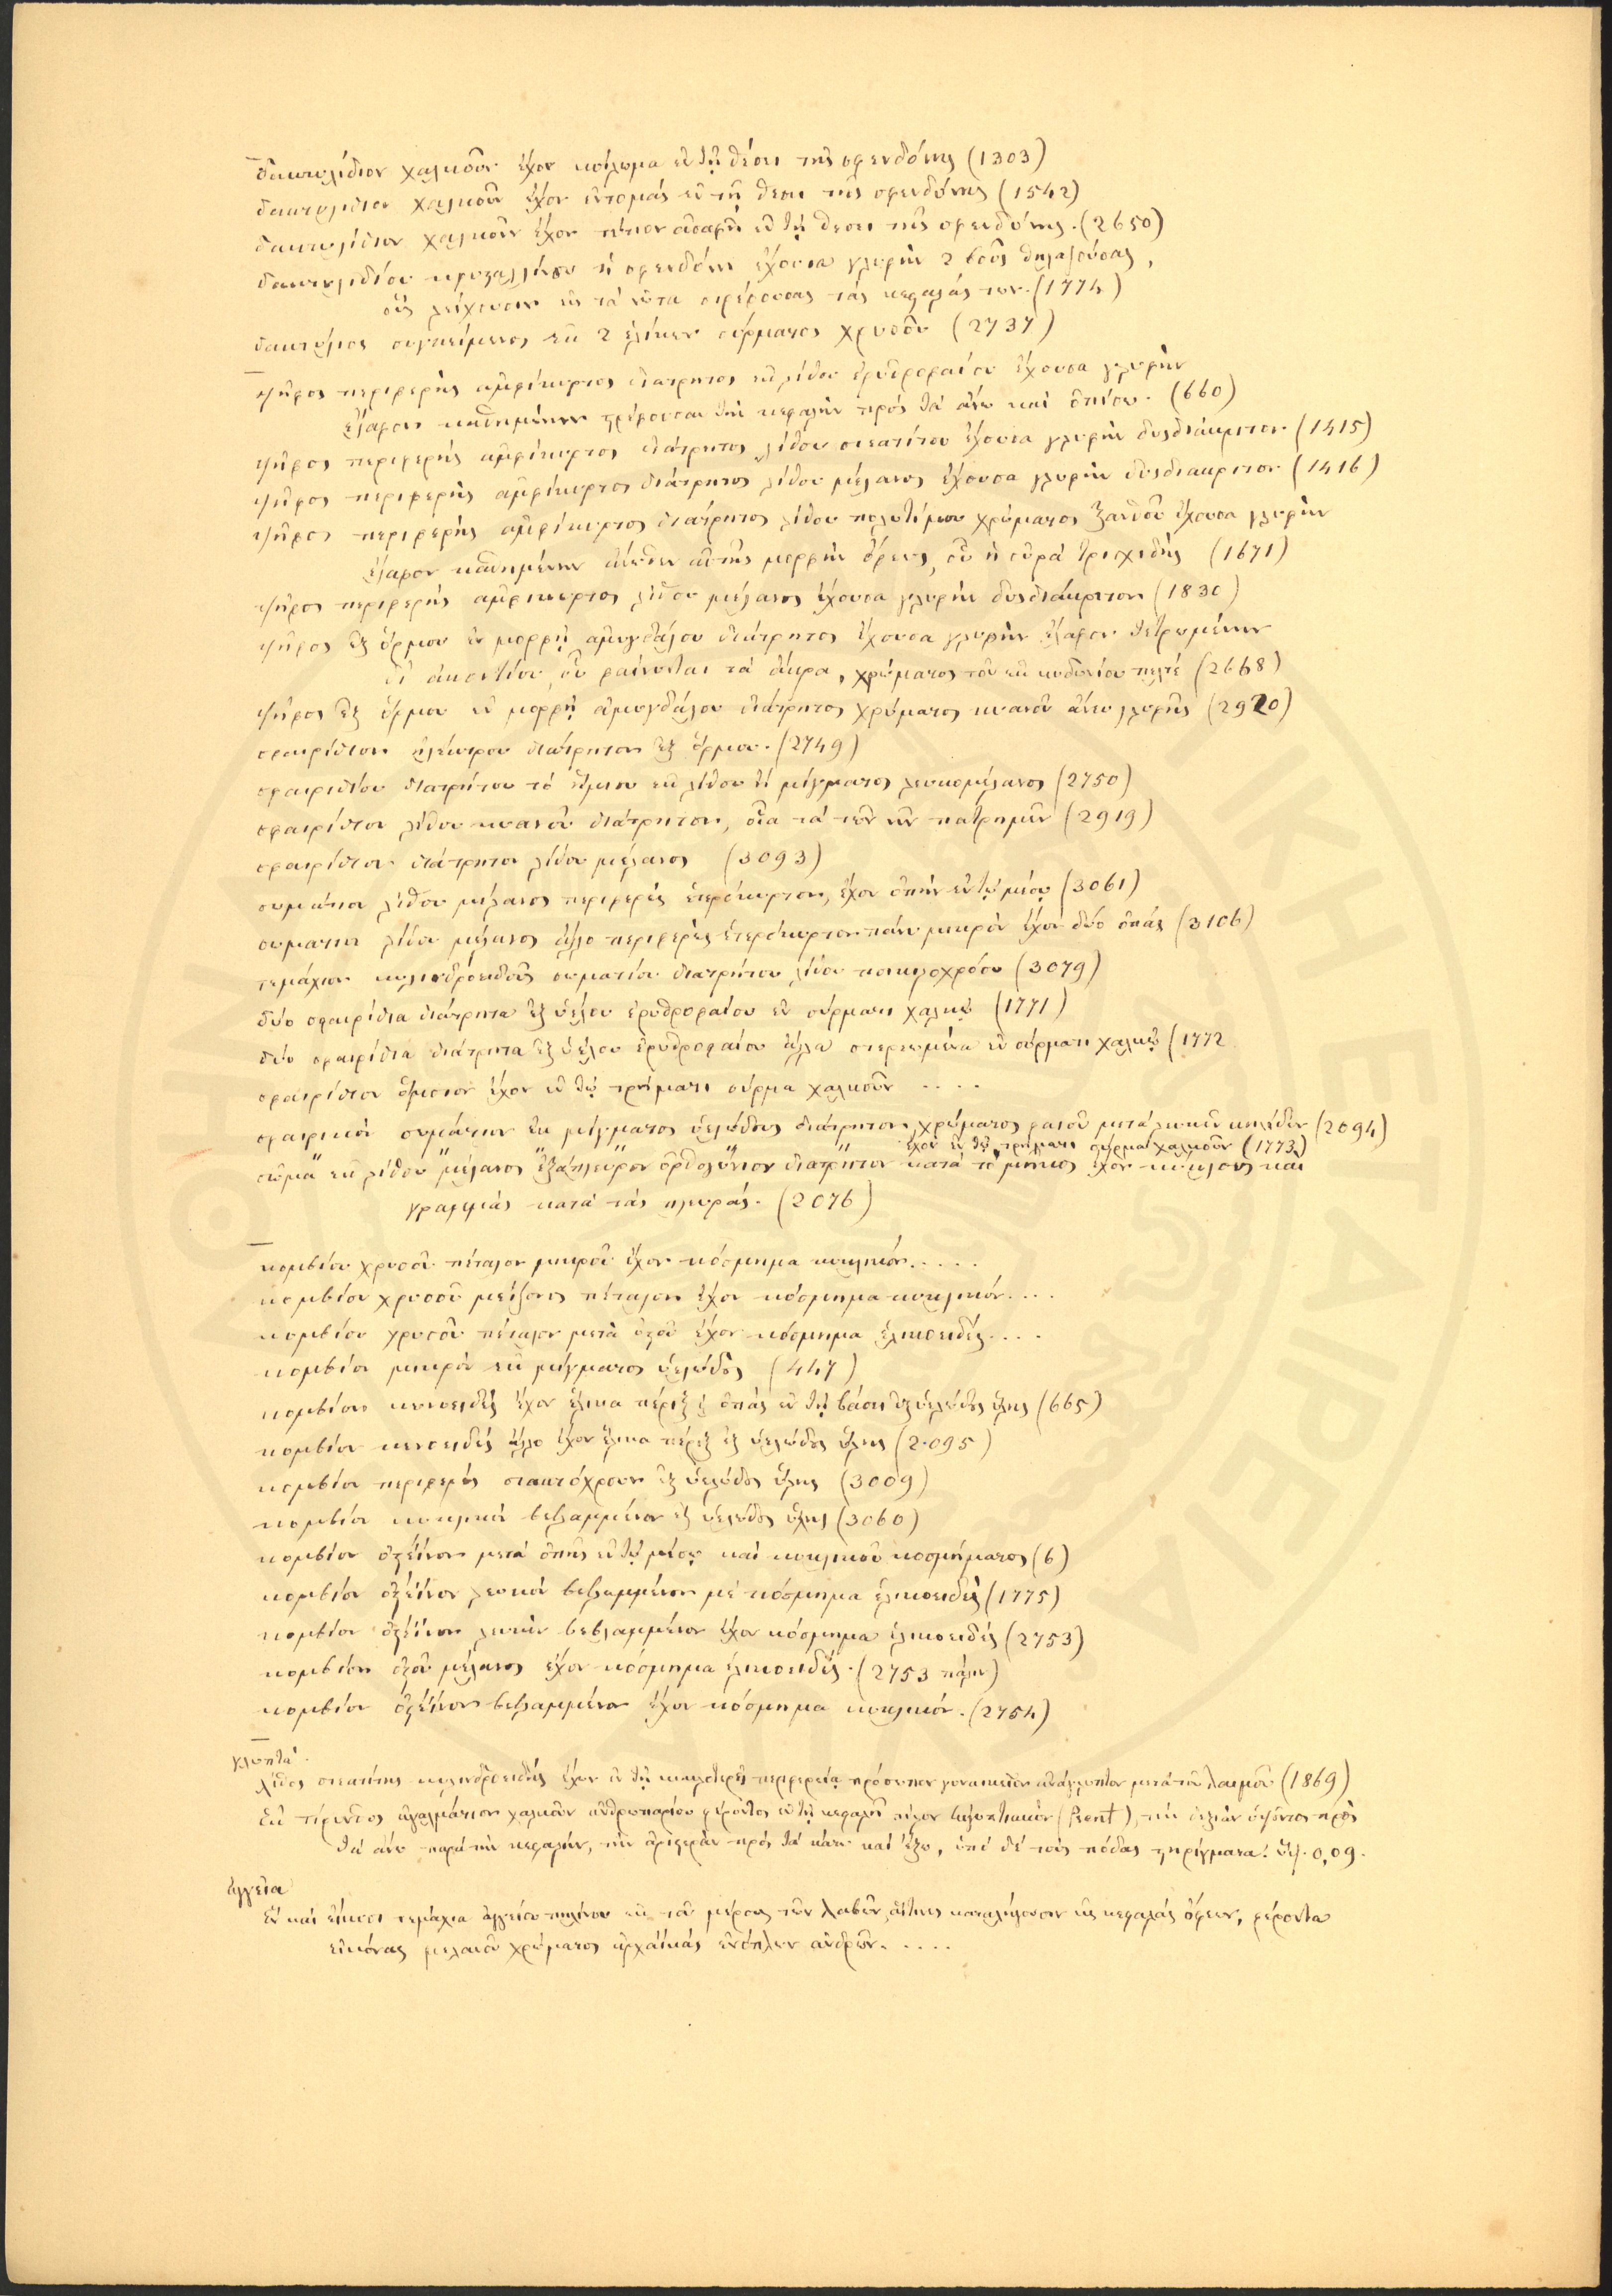 δακτυλίδιον χαλκοῦν ἔχον κοίλωμα ἐν τῇ θέσει τῆς σφενδόνης (1303)
δακτυλίδιον χαλκοῦν ἔχον ἐντομάς ἐν τῇ θέσει τῆς σφενδόνης (1542)
δακτυλίδιον χαλκοῦν ἔχον τύπον ἀσαφῆ ἐν τῇ θέσει τῆς σφενδόνης. (2650)
δακτυλιδίου κρυσταλλίνου ἡ σφενδόνη ἔχουσα γλυφὴν 2 βοῦς θηλαζούσας,
οὓς λείχουσιν εἰς τὰ νῶτα στρέφουσαι τὰς κεφαλάς των. (1774)
δακτύλιος συγκείμενος ἐκ 2 ἑλίκων σύρματος χρυσοῦ (2737)
ψῆφος περιφερὴς ἀμφίκυρτος διάτρητος ἐκ λίθου ἐρυθροφαίου ἔχουσα γλυφὴν
ἔλαφον καθημένην στρέφουσαν τὴν κεφαλὴν πρὸς τὰ ἄνω καὶ ὀπίσω. (660)
ψῆφος περιφερής ἀμφίκυρτος διάτρητος λίθου στεατίτου ἔχουσα γλυφὴν δυςδιάκριτον (1415)
ψῆφος περιφερὴς ἀμφίκυρτος διάτρητος λίθου μέλανος ἔχουσα γλυφὴν δυςδιακριτον (1416)
ψῆφος περιφερής ἀμφίκυρτος διάτρητος λίθου πολυτίμου χρώματος ξανθοῦ ἔχουσα γλυφὴν
ἔλαφον καθημένην ἄνωθεν αὐτῆς μορφὴν ὄφεως, οὗ ἡ οὐρά τρισχιδής (1671)
ψῆφος περιφερής ἀμφίκυρτος λίθου μέλανος ἔχουσα γλυφὴν δυςδιάκριτον (1830)
ψῆφος ἐξ ὅρμου ἐν μορφῇ ἀμυγδάλου διάτρητος ἔχουσα γλυφὴν ἔλαφον τετρωμένην
δι' ἀκοντίου, οὗ φαίνονται τὰ ἄκρα, χρώματος τοῦ ἐκ κυδωνίου πελτέ (2668)
ψῆφος ἐξ ὅρμου ἐν μορφῇ ἀμυγδάλου διάτρητος χρώματος κυανοῦ ἄνευ γλυφῆς (2920)
σφαιρίδιον ἠλέκτρου διάτρητον ἐξ ὅρμου. (2749)
σφαιριδίου διατρήτου τὸ ἥμισυ ἐκ λίθου ἢ μίγματος λευκομέλανος (2750)
σφαιρίδιον λίθου κυανοῦ διάτρητον, οἷα τὰ τῶν νῦν πατρημῶν (2919)
σφαιρίδιον διάτρητον λίθου μέλανος (3093)
σωμάτιον λίθου μέλανος περιφερές ἑτερόκυρτον, ἔχον ὀπὴν ἐν τῷ μέσῳ (3061)
σωματιον λίθου μέλανος ἄλλο περιφερὲς ἑτερόκυρτον πάνυ μικρὸν ἔχον δύο ὀπάς (3106)
τεμάχιον κυλινδροειδοῦς σωματίου διατρήτου λίθου ποικιλοχρόου (3079)
δύο σφαιρίδια διάτρητα ἐξ ὑέλου ἐρυθροφαίου ἐν σύρματι χαλκῷ (1771)
δύο σφαιρίδια διάτρητα ἐξ ὑέλου ἐρυθροφαίου ἄλλα στερεωμένα ἐν σύρματι χαλκῷ (1772
σφαιρίδιον ὅμοιον ἔχον ἐν τῷ τρήματι σύρμα χαλκοῦν ....
σφαιρικὸν σωμάτιον ἐκ μίγματος ὑελώδους διάτρητον, χρώματος φαιοῦ μετὰ λευκῶν κηλίδων (2094)
ἔχον ἐν τῷ τρήματι σύρμα χαλκοῦν (1773)
σῶμα ἐκ λίθου μέλανος ἑξάπλευρον ὀρθογώνιον διατρητον κατὰ τὸ μῆκος ἔχον κύκλους καὶ
γραμμὰς κατὰ τὰς πλευράς. (2076)
κομβίου χρυσοῦ πέταλον μικροῦ ἔχον κόσμημα κυκλικόν.....
κομβίου χρυσοῦ μείζονος πέταλον ἔχον κόσμημα κυκλικόν....
κομβίου χρυσοῦ πέταλον μετὰ ὀστοῦ ἔχον κόσμημα ἑλικοειδές....
κομβίον μικρὸν ἐκ μίγματος ὑελώδους (447)
κομβίον κωνοειδὲς ἔχον ἕλικα πέριξ ὀπὰς ἐν τῇ βάσει ἐξ ὑελώδους ὕλης (665)
κομβίον κωνοειδὲς ἄλλο ἔχον ἕλικα πέριξ ἐξ ὑελώδους ὕλης (2095)
κομβίον περιφερὲς στακτόχρουν ἐξ ὑελώδους ὕλης (3009)
κομβίον κυκλικὸν βεβλαμμένον ἐξ ὑελώδους ὕλης (3060)
κομβίον ὀστέϊνον μετὰ ὀπῆς ἐν τῷ μέσῳ καὶ κυκλικοῦ κοσμήματος (6)
κομβίον ὀστέϊνον λευκὸν βεβλαμμένον μὲ κόσμημα ἑλικοειδὲς (1775)
κομβίον ὀστέϊνον λευκὸν βεβλαμμένον ἔχον κόσμημα ἑλικοειδές (2753)
κομβίον ὀστοῦ μέλανος ἔχον κόσμημα ἑλικοειδές. (2753 πάλιν)
κομβίον ὀστέϊνον βεβλαμμένον ἔχον κόσμημα κυκλικόν. (2754)
γλυπτά.
λίθος στεατίτης κυλινδροειδής ἔχων ἐν τῇ κυκλοτερεῖ περιφερείᾳ πρόσωπον γυναικεῖον ἀνάγλυπτον μετὰ τοῦ λαιμοῦ (1869)
Ἐκ τίρυνθος ἀγαλμάτιον χαλκοῦν ἀνθρωπαρίου φέροντος ἐν τῇ κεφαλῇ πῖλον αἰγυπτιακὸν (Pšent), τὴν δεξιὰν ὑψοῦντος πρὸς
τὰ ἄνω παρὰ τὴν κεφαλήν, τὴν ἀριστερὰν πρὸς τὰ κάτω καὶ ἔξω, ὑπὸ δὲ τοὺς πόδας στηρίγματα. ὕψ. 0,09.
ἀγγεῖα
Ἓν καὶ εἴκοσι τεμάχια ἀγγείου πηλίνου ἐκ τοῦ μέρους τῶν λαβῶν, αἵτινες καταλήγουσιν εἰς κεφαλὰς ὄφεων, φέροντα
εἰκόνας μελανοῦ χρώματος ἀρχαϊκὰς ἐνόπλων ἀνδρῶν.....